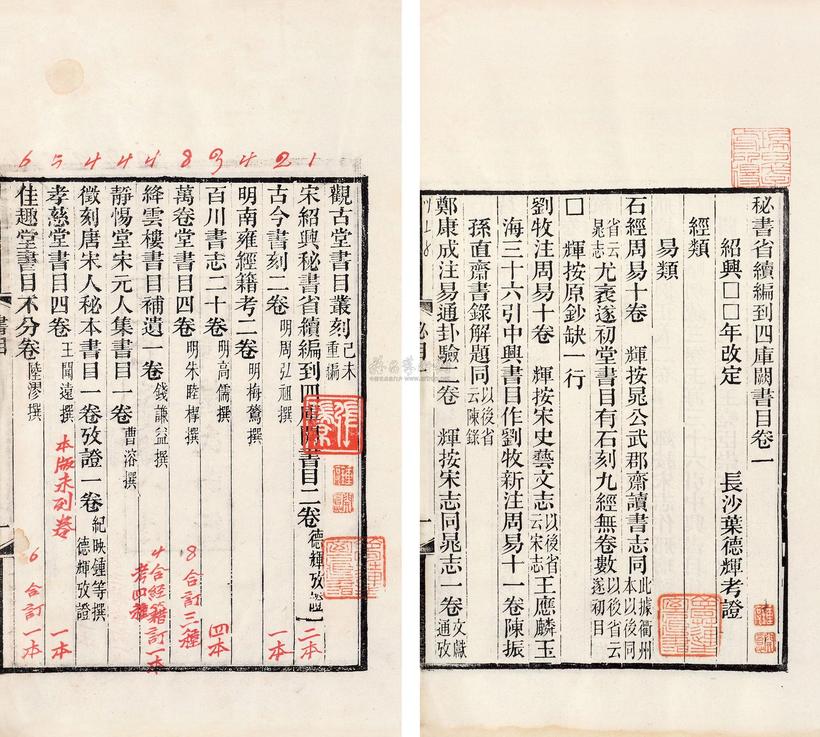 秘書省續編到四庫闕書目卷一
紹興□□年改定
長沙葉德輝考證
經類
易類
石經周易十卷 輝按晁公武郡齋讀書志同此據衢州本以後同
省云晁志尤袤遂初堂書目有石刻九經無卷數以後省云遂初目
劉牧注周易十卷 輝按宋史藝文志以後省云宋志王應麟玉
海三十六引中興書目作劉牧新注周易十一卷陳振
孫直齋書錄解題同以後省云陳錄
□ 輝按原鈔缺一行
鄭康成注易通卦驗二卷 輝按宋志同晁志一卷文獻通攷
觀古堂書目叢刻己未重編
宋紹興秘書省續編到四庫闕書目二卷德輝攷證
古今書刻二卷明周弘祖撰
明南雍經籍考二卷明梅鷟撰
百川書志二十卷明高儒撰
萬卷堂書目四卷明朱睦㮮撰
絳雲樓書目補遺一卷錢謙益撰
靜惕堂宋元人集書目一卷曹溶撰
徵刻唐宋人秘本書目一卷攷證一卷紀映鍾等撰德輝攷證
孝慈堂書目四卷王聞遠撰
佳趣堂書目不分卷陸漻撰
1 2 4 3 8 4 4 4 5 6
二本
一本
四本
8 合訂三種
4 合經籍考四種訂一本
一本
本版未列卷
6 合訂一本
書目